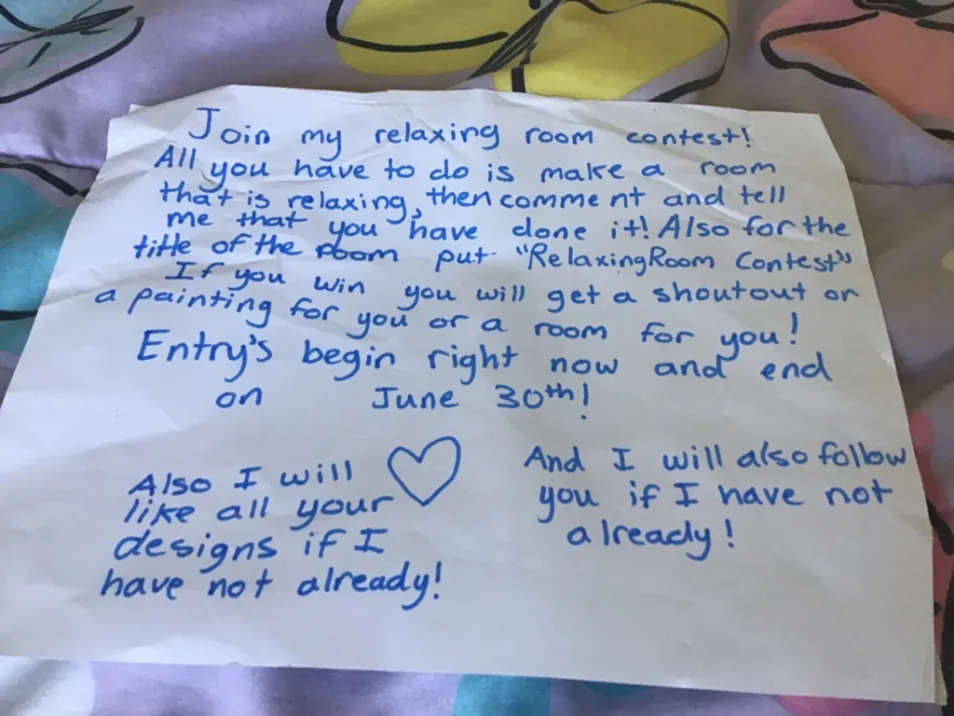 Join my relaxing room contest!
All you have to do is make a room
that is relaxing, then comment and tell
me that you have done it! Also for the
title of the room put "RelaxingRoom Contest"
If you win you will get a shoutout or
a painting for you or a room for you!
Entry's begin right now and end
on June 30th!
Also I will
like all your
designs if I
have not already!
And I will also follow
you if I have not
already!